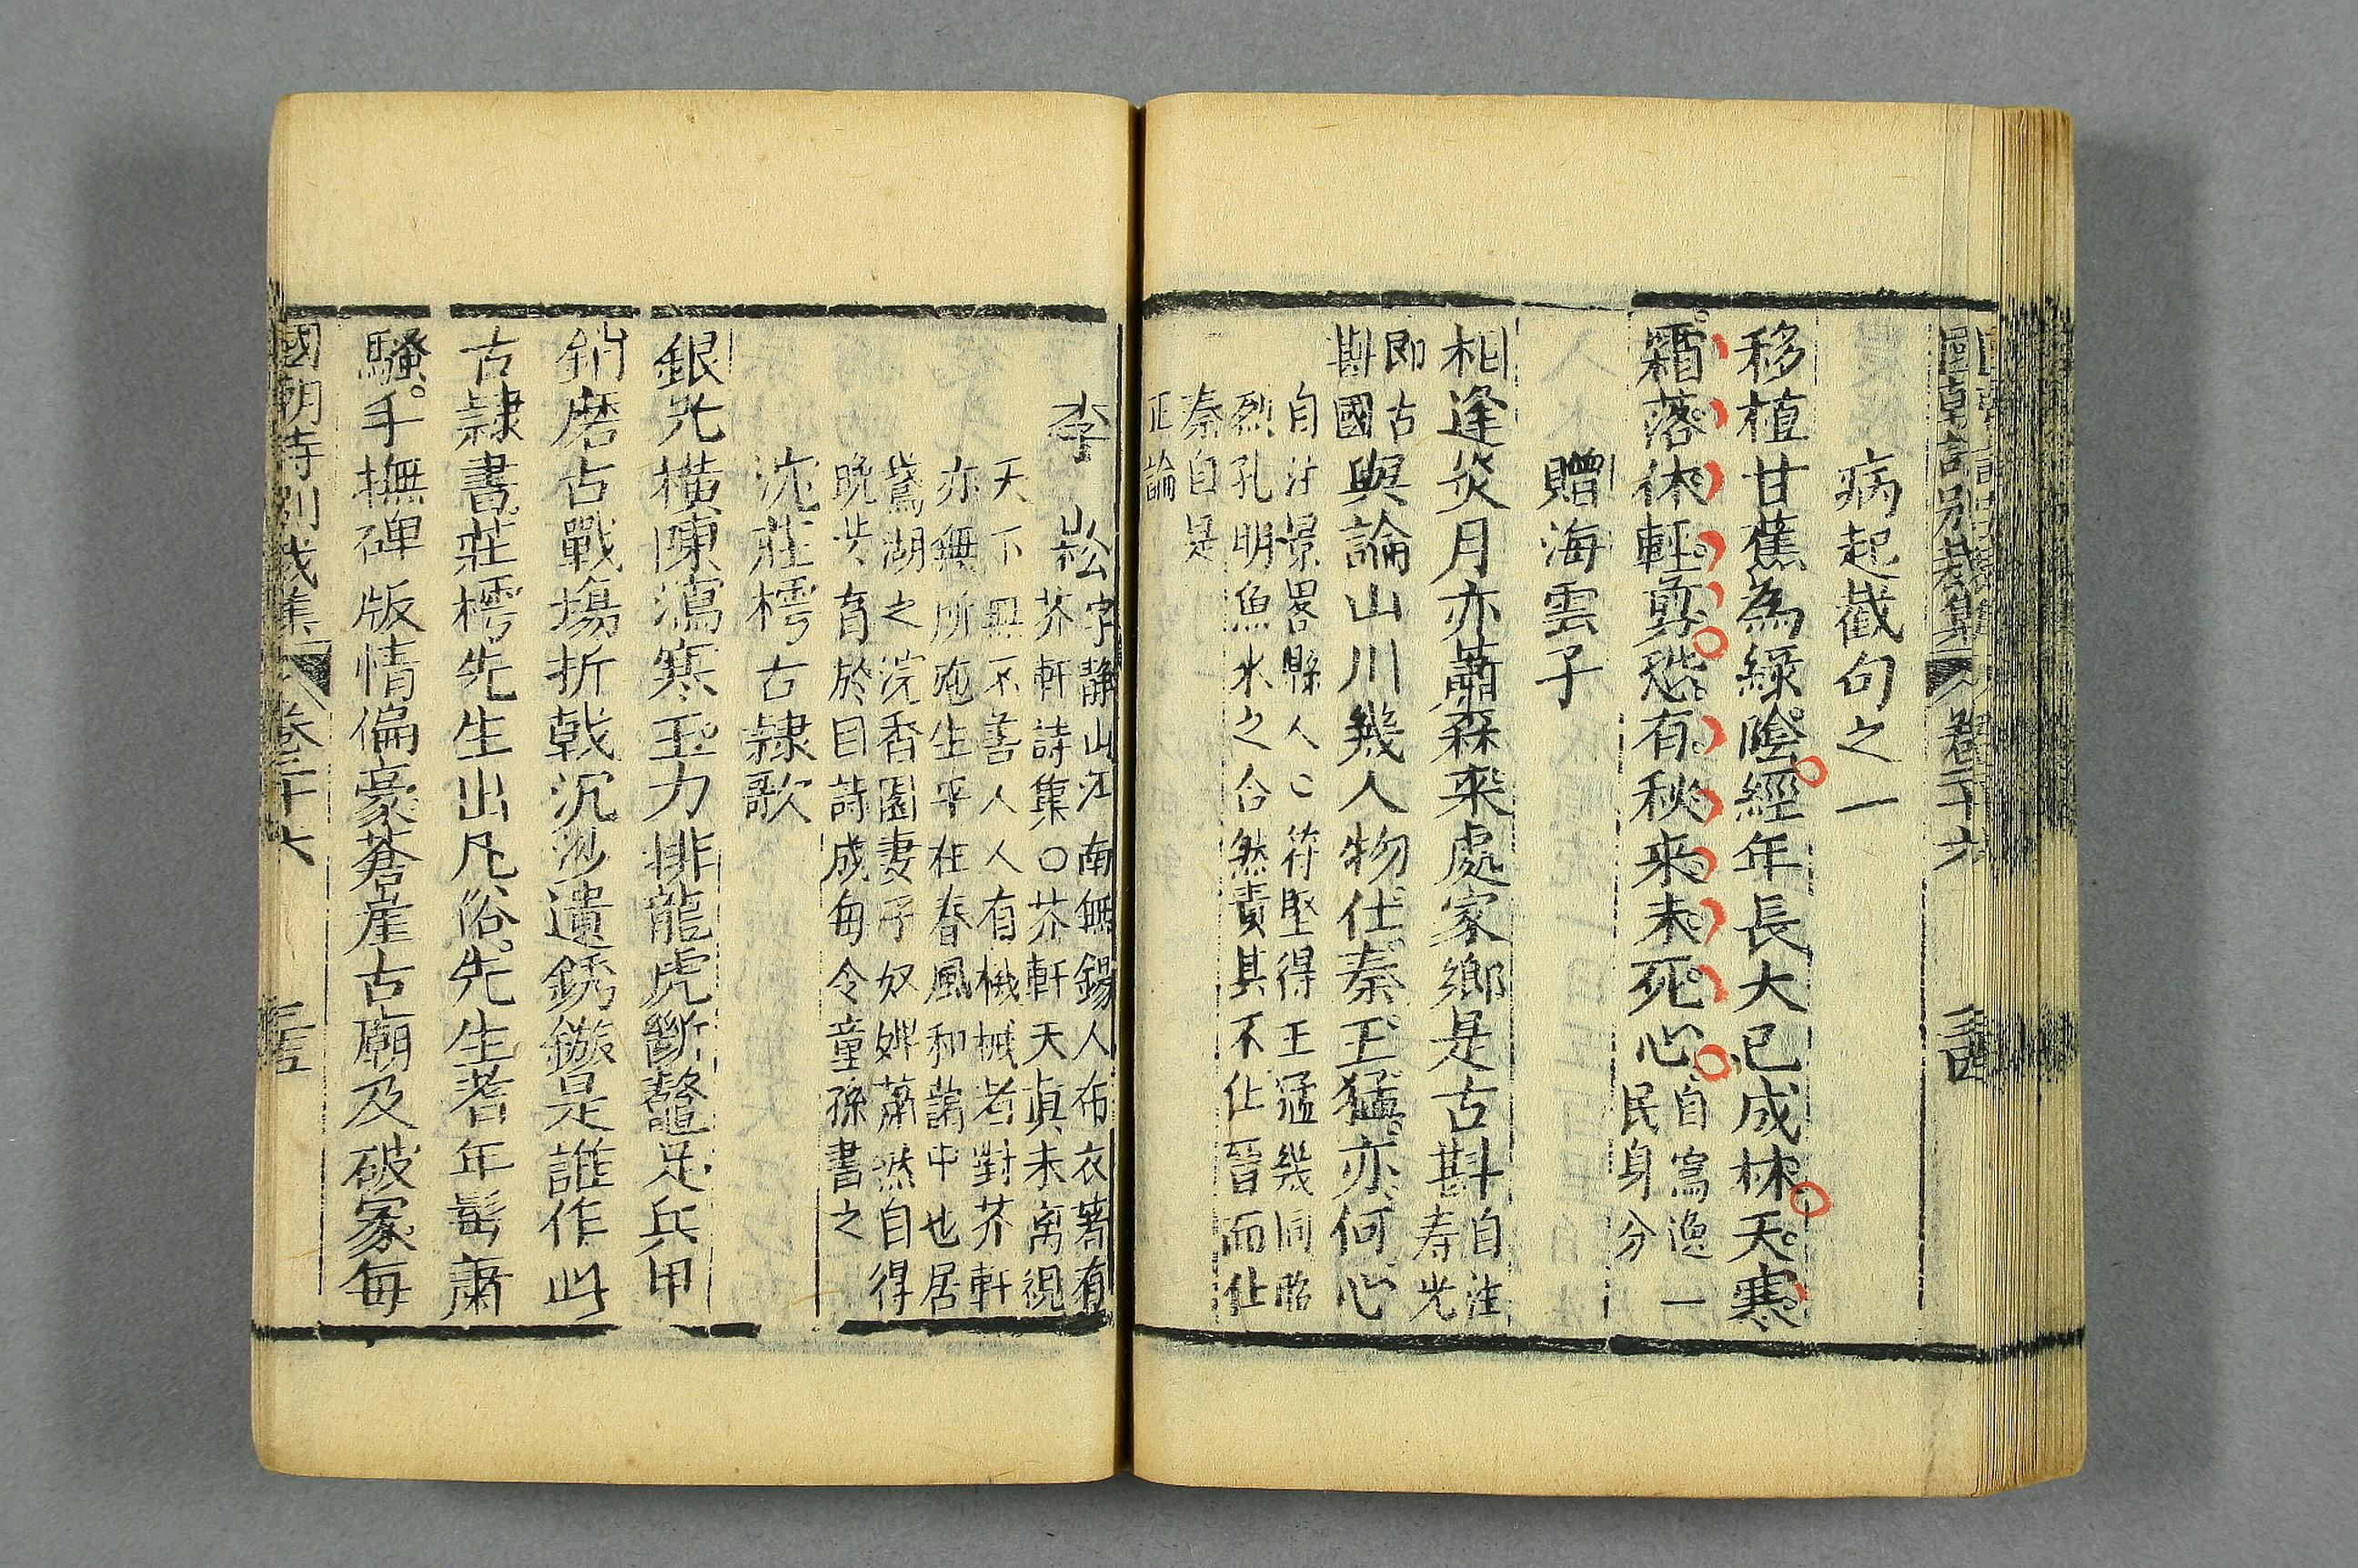 國朝詩別裁集 卷二十六 三古
病起截句之一
移植甘蕉為綠陰經年長大已成林天寒
霜落休輕剪愁有秋來未死心
自寫逸一
民身分
贈海雲子
相逢炎月亦蕭森來處家鄉是古斟
自注
壽光
即古
斟國
與論山川幾人物仕秦王猛亦何心
自注景畧縣人〻符堅得王猛幾同昭
烈孔明魚水之合然責其不仕晉而仕
秦自是
正論
李崧
字靜山江南無錫人布衣著有
芥軒詩集〇芥軒天真未离視
天下無不善人人有機械者對芥軒
亦無所施生平在春風和藹中也居
鵞湖之浣香園妻子奴婢蕭然自得
晚失育於目詩成每令童孫書之
沈莊樗古隸歌
銀光橫陳瀉寒玉力排龍虎斷鼇足兵甲
銷磨古戰塲折戟沉沙遺銹鏃是誰作此
古隸書莊樗先生出凡俗先生耆年髩蕭
騷手撫碑版情偏豪蒼崖古廟及破冢每
國朝詩別裁集 卷二十六